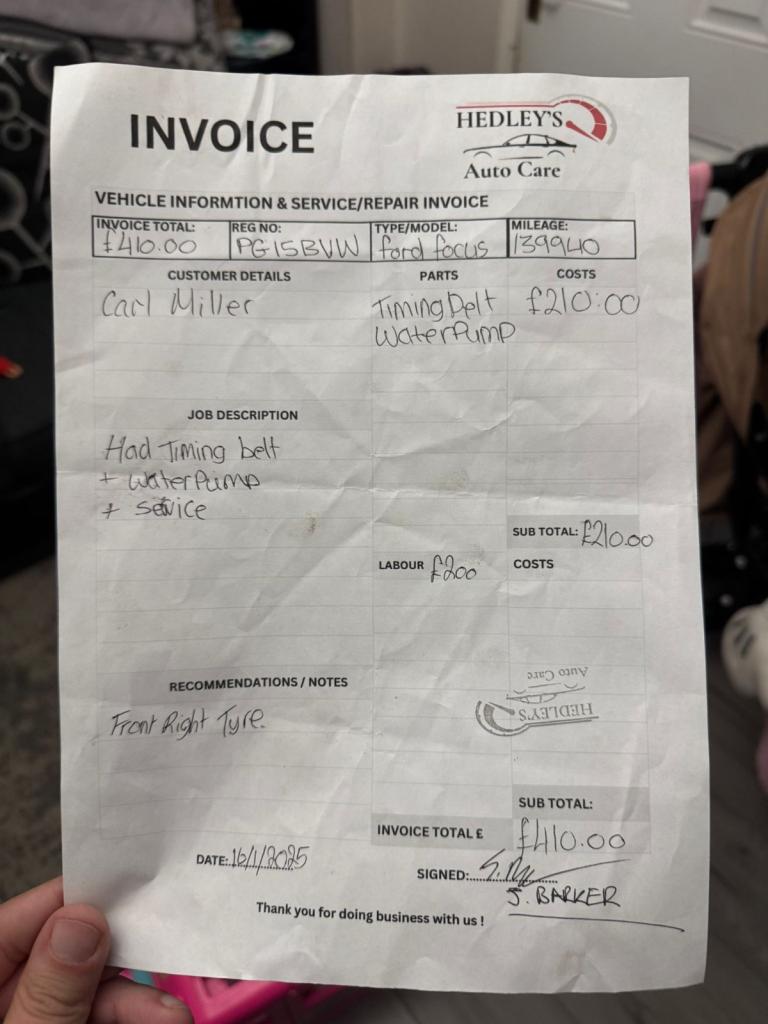 INVOICE
HEDLEY'S
Auto Care
VEHICLE INFORMTION & SERVICE/REPAIR INVOICE
INVOICE TOTAL: £410.00
REG NO: PG15BVW
TYPE/MODEL: ford focus
MILEAGE: 139940
CUSTOMER DETAILS
Carl Miller
PARTS
Timing Belt
WaterPump
COSTS
£210:00
JOB DESCRIPTION
Had Timing belt
+ WaterPump
+ Service
SUB TOTAL: £210.00
LABOUR £200
COSTS
RECOMMENDATIONS / NOTES
Front Right Tyre.
HEDLEY'S
Auto Care
SUB TOTAL:
INVOICE TOTAL £
£410.00
DATE: 16/1/2025
SIGNED:
J. BARKER
Thank you for doing business with us !